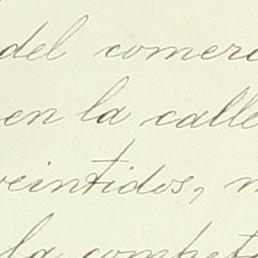 del comerc
en la calle
veintidos, n
la compet